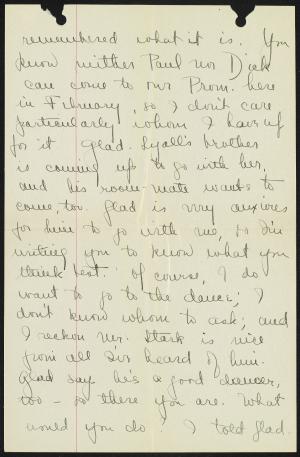 remembered what it is. You
know neither Paul nor Dick
can come to our Prom. here
in February, so I don't care
particularly whom I have up
for it. Glad. Lyall's brother
is coming up to go with her,
and his room-mate wants to
come, too. Glad is very anxious
for him to go with me, so I'm
writing you to know what you
think best. Of course, I do
want to go to the dance; I
don't know whom to ask; and
I reckon Mr. Stark is nice
from all I've heard of him.
Glad says he's a good dancer,
too - so there you are. What
would you do? I told Glad.